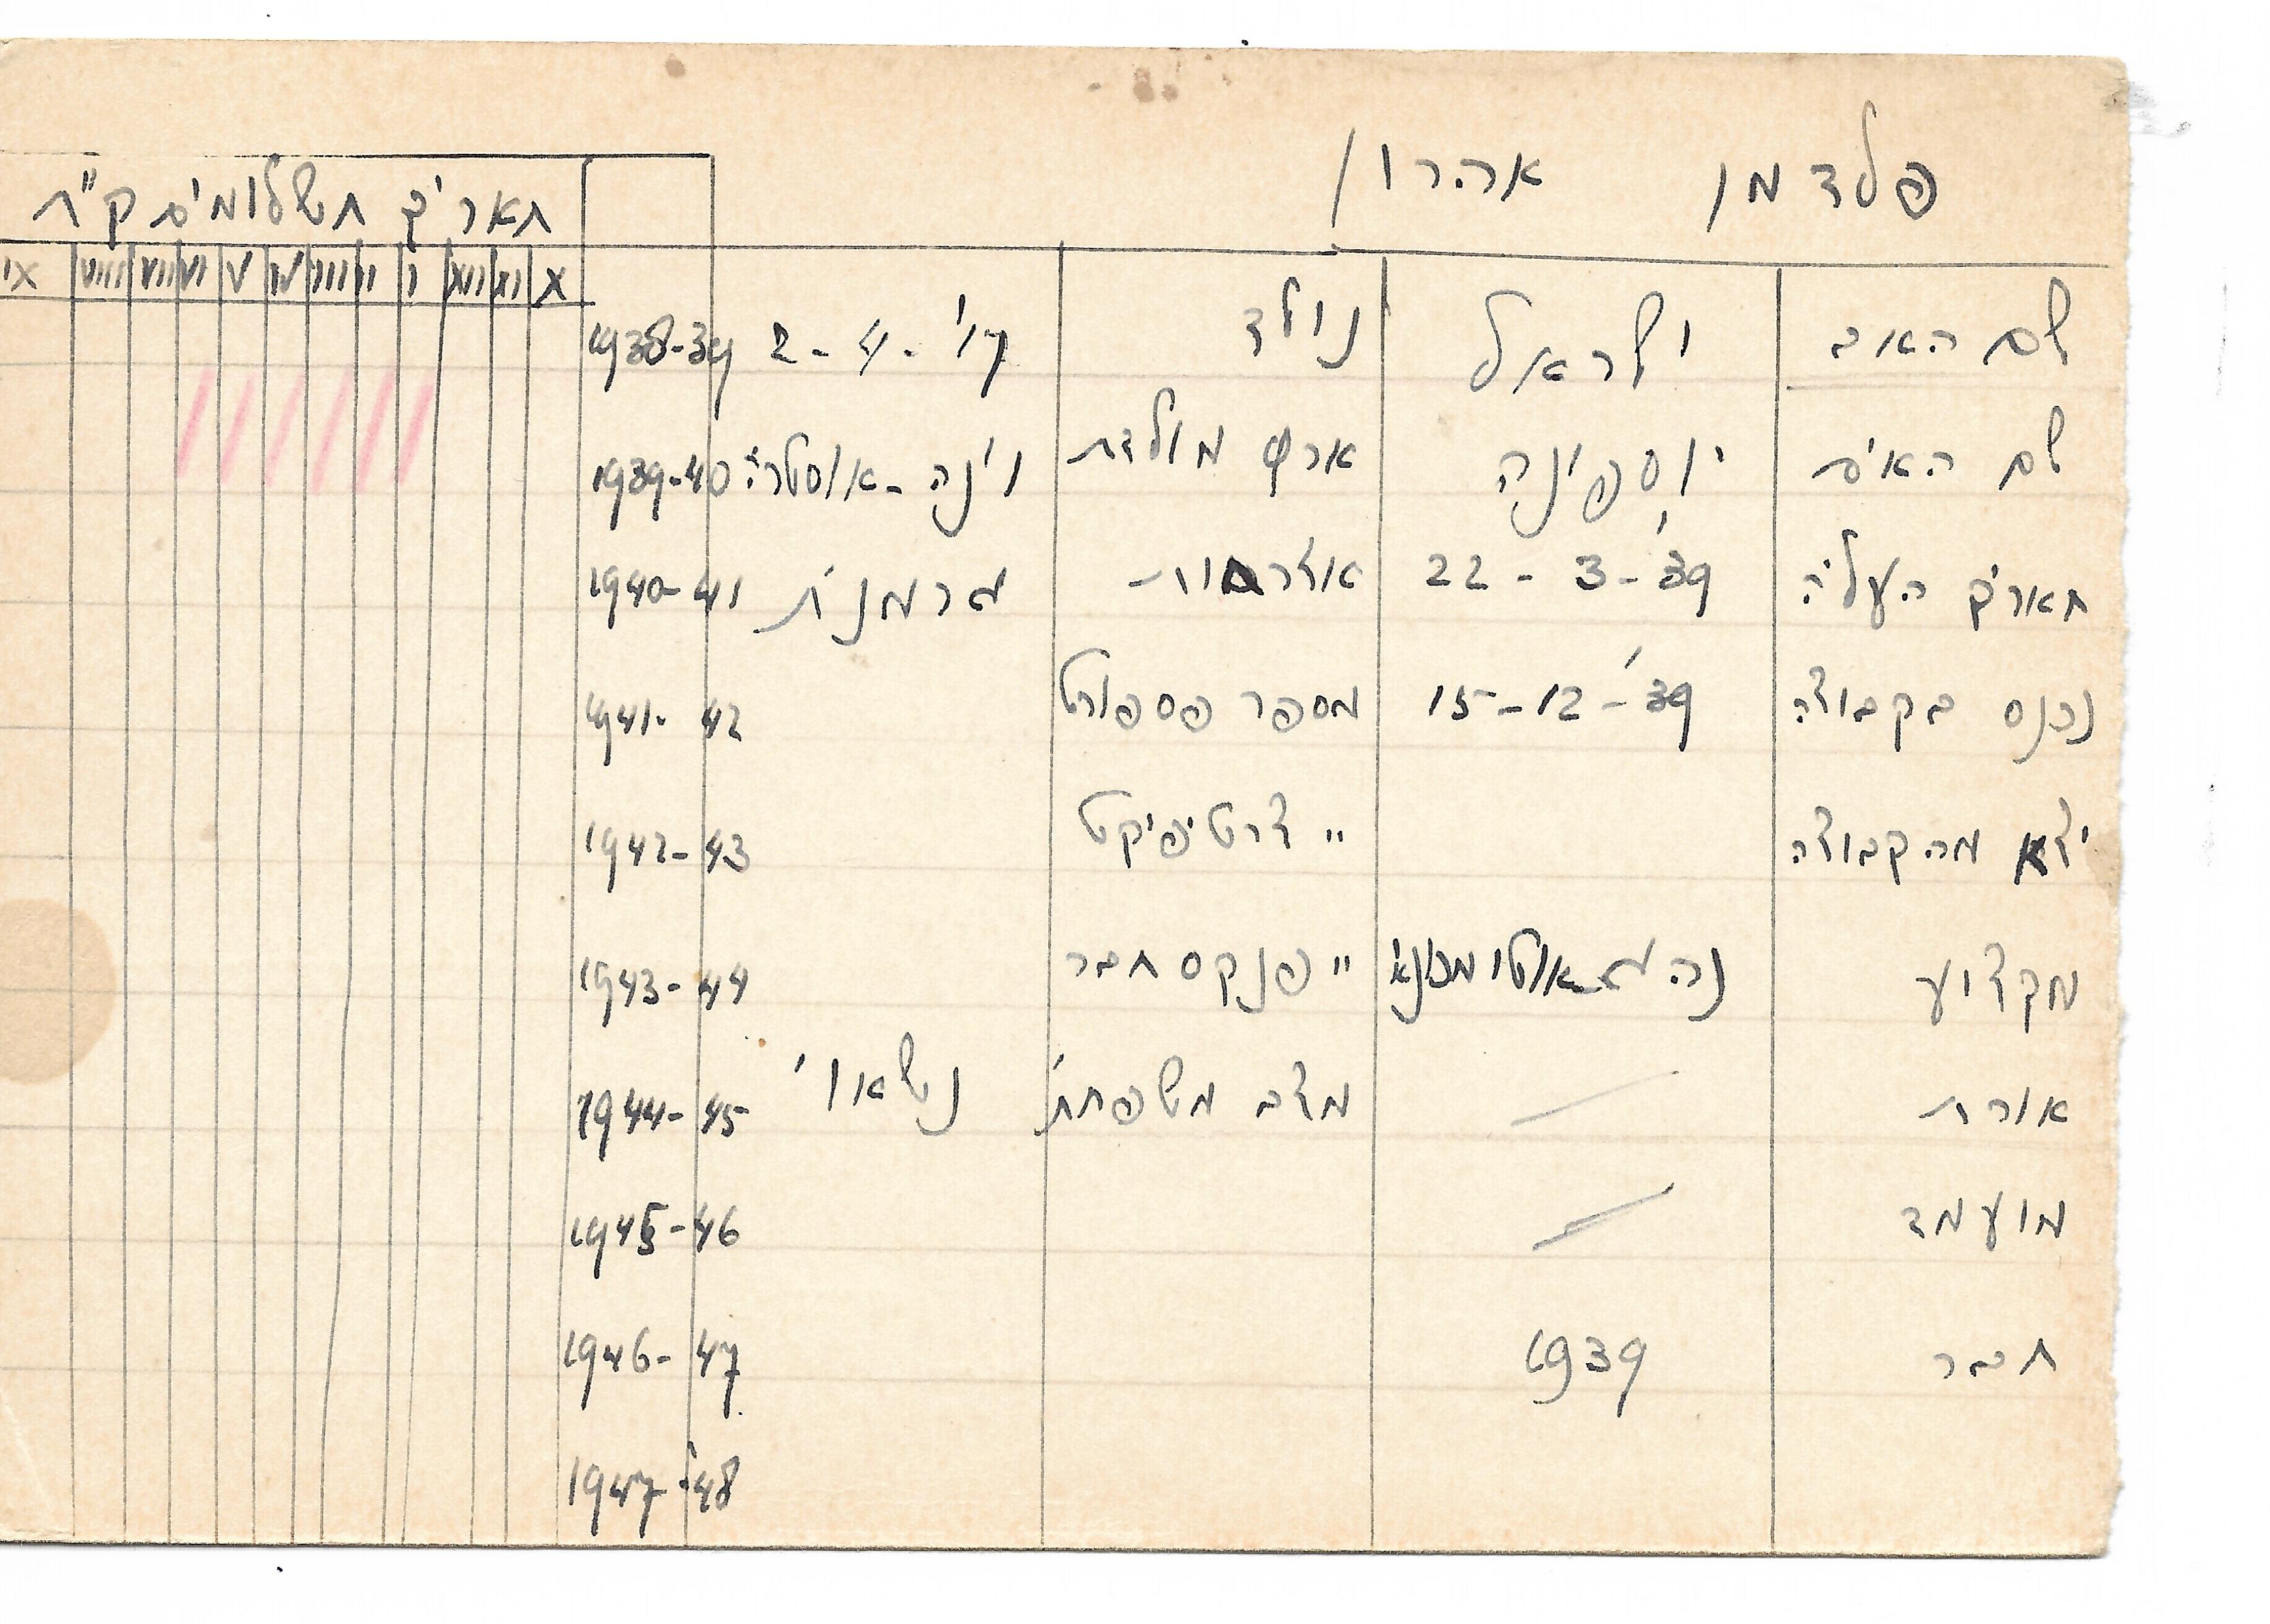 פלדמן אהרון
שם האב ישראל נולד 2-4-17'
שם האים יוספינה ארץ מולדת וינה-אוסטריה
תאריך העליה 22-3-39' אזרחות גרמנית
נכנס בקבוצה 15-12-39' מספר פספורט
יצא מהקבוצה " צרטיפיקט
מקצוע נהג אוטו מכונאי " פנקס חבר
אורח מצב משפחתי נשאוי
מועמד
חבר 1939
תאריך תשלומים ק"ח
X XI XII I II III IV V VI VII VIII IX
1938-39
1939-40
1940-41
1941-42
1942-43
1943-44
1944-45
1945-46
1946-47
1947-48